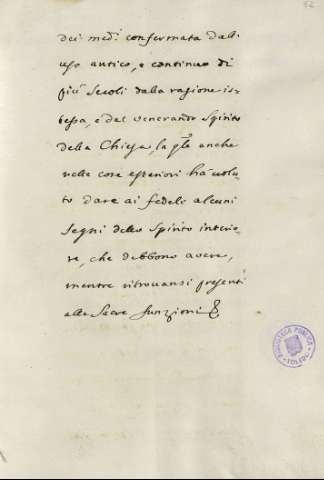 dei med.i confermata dall'
uso antico, e continuo di
più Secoli dalla ragione is-
tessa, e dal venerando Spirito
della Chiesa, la qle anche
nelle cose esteriori ha volu-
to dare ai fedeli alcuni
Segni dello Spirito interio-
re, che debbono avere,
mentre ritrovansi presenti
alle Sacre funzioni
BIBLIOTECA PUBLICA
TOLEDO